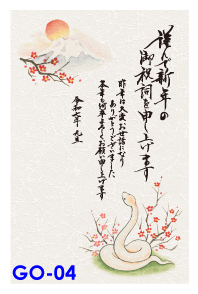 謹んで新年の
御祝詞を申し上げます
昨年は大変お世話になり
ありがとうございました
本年も何卒よろしくお願い申し上げます
令和七年 元旦
GO-04